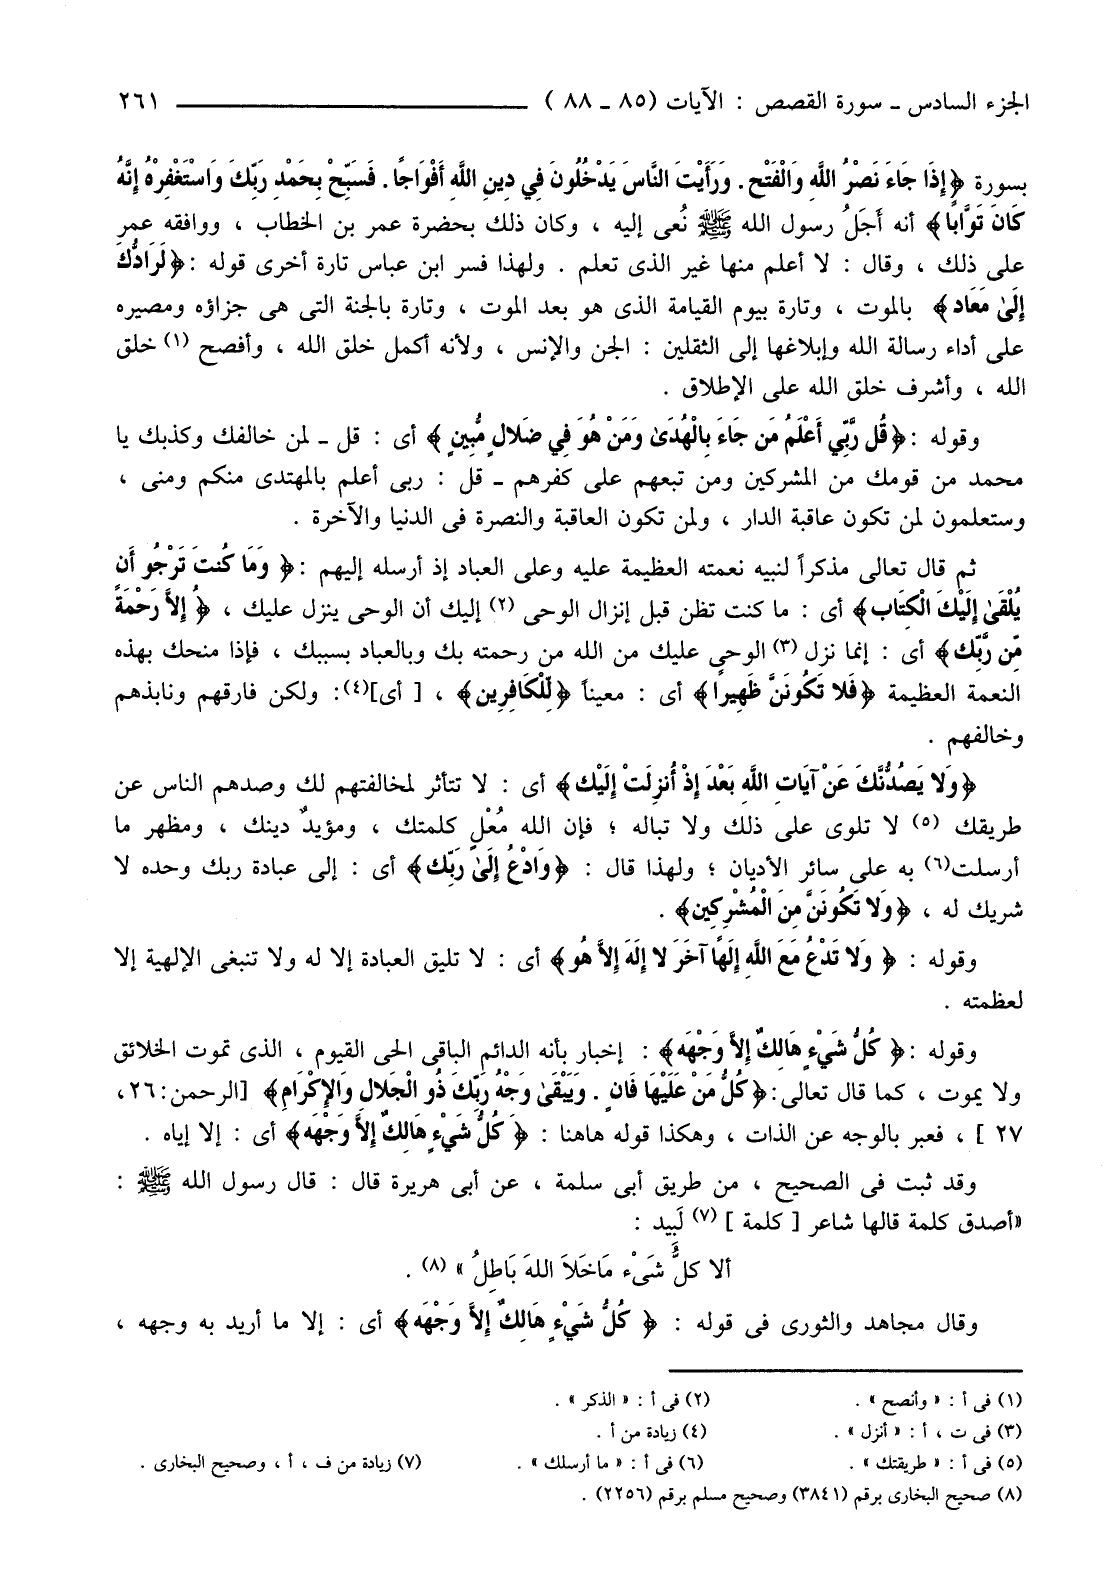 الجزء السادس ـ سورة القصص : الآيات (٨٥ ـ ٨٨ ) ٢٦١
بسورة ﴿إِذَا جَاءَ نَصْرُ اللَّهِ وَالْفَتْح. وَرَأَيْتَ النَّاسَ يَدْخُلُونَ فِي دِينِ اللَّهِ أَفْوَاجًا. فَسَبِّحْ بِحَمْدِ رَبِّكَ وَاسْتَغْفِرْهُ إِنَّهُ
كَانَ تَوَّابا﴾ أنه أَجَلُ رسول الله ﷺ نُعى إليه ، وكان ذلك بحضرة عمر بن الخطاب ، ووافقه عمر
على ذلك ، وقال : لا أعلم منها غير الذى تعلم . ولهذا فسر ابن عباس تارة أخرى قوله :﴿لَرَادُّكَ
إِلَىٰ مَعَاد﴾ بالموت ، وتارة بيوم القيامة الذى هو بعد الموت ، وتارة بالجنة التى هى جزاؤه ومصيره
على أداء رسالة الله وإبلاغها إلى الثقلين : الجن والإنس ، ولأنه أكمل خلق الله ، وأفصح (١) خلق
الله ، وأشرف خلق الله على الإطلاق .
وقوله :﴿قُل رَّبِّي أَعْلَمُ مَن جَاءَ بِالْهُدَىٰ وَمَنْ هُوَ فِي ضَلالٍ مُّبِينٍ ﴾ أى : قل ـ لمن خالفك وكذبك يا
محمد من قومك من المشركين ومن تبعهم على كفرهم ـ قل : ربى أعلم بالمهتدى منكم ومنى ،
وستعلمون لمن تكون عاقبة الدار ، ولمن تكون العاقبة والنصرة فى الدنيا والآخرة .
ثم قال تعالى مذكراً لنبيه نعمته العظيمة عليه وعلى العباد إذ أرسله إليهم :﴿ وَمَا كُنتَ تَرْجُو أَن
يُلْقَىٰ إِلَيْكَ الْكِتَاب﴾ أى : ما كنت تظن قبل إنزال الوحى (٢) إليك أن الوحى ينزل عليك ، ﴿ إِلاَّ رَحْمَةً
مِّن رَّبِّك﴾ أى : إنما نزل (٣) الوحى عليك من الله من رحمته بك وبالعباد بسببك ، فإذا منحك بهذه
النعمة العظيمة ﴿فَلا تَكُونَنَّ ظَهِيرا﴾ أى : معيناً ﴿لِّلْكَافِرِين﴾ ، [ أى](٤): ولكن فارقهم ونابذهم
وخالفهم .
﴿وَلا يَصُدُّنَّكَ عَنْ آيَاتِ اللَّهِ بَعْدَ إِذْ أُنزِلَتْ إِلَيْك﴾ أى : لا تتأثر لمخالفتهم لك وصدهم الناس عن
طريقك (٥) لا تلوى على ذلك ولا تباله ؛ فإن الله مُعْلٍ كلمتك ، ومؤيدٌ دينك ، ومظهر ما
أرسلت(٦) به على سائر الأديان ؛ ولهذا قال : ﴿وَادْعُ إِلَىٰ رَبِّك﴾ أى : إلى عبادة ربك وحده لا
شريك له ، ﴿وَلا تَكُونَنَّ مِنَ الْمُشْرِكِين﴾ .
وقوله : ﴿ وَلا تَدْعُ مَعَ اللَّهِ إِلَهًا آخَرَ لا إِلَهَ إِلاَّ هُو﴾ أى : لا تليق العبادة إلا له ولا تنبغى الإلهية إلا
لعظمته .
وقوله :﴿ كُلُّ شَيْءٍ هَالِكٌ إِلاَّ وَجْهَه﴾ : إخبار بأنه الدائم الباقى الحى القيوم ، الذى تموت الخلائق
ولا يموت ، كما قال تعالى:﴿كُلُّ مَنْ عَلَيْهَا فَان . وَيَبْقَىٰ وَجْهُ رَبِّكَ ذُو الْجَلالِ وَالإِكْرَام﴾ [الرحمن:٢٦،
٢٧ ] ، فعبر بالوجه عن الذات ، وهكذا قوله هاهنا : ﴿ كُلُّ شَيْءٍ هَالِكٌ إِلاَّ وَجْهَه﴾ أى : إلا إياه .
وقد ثبت فى الصحيح ، من طريق أبى سلمة ، عن أبى هريرة قال : قال رسول الله ﷺ :
«أصدق كلمة قالها شاعر [ كلمة ] (٧) لَبِيد :
ألا كلُّ شَىْء مَاخَلاَ اللهَ بَاطِلُ » (٨) .
وقال مجاهد والثورى فى قوله : ﴿ كُلُّ شَيْءٍ هَالِكٌ إِلاَّ وَجْهَه﴾ أى : إلا ما أريد به وجهه ،
(١) فى أ : « وأنصح » . (٢) فى أ : « الذكر » .
(٣) فى ت ، أ : « أنزل » . (٤) زيادة من أ .
(٥) فى أ : « طريقتك » . (٦) فى أ : « ما أرسلك » . (٧) زيادة من ف ، أ ، وصحيح البخارى .
(٨) صحيح البخارى برقم (٣٨٤١) وصحيح مسلم برقم (٢٢٥٦) .